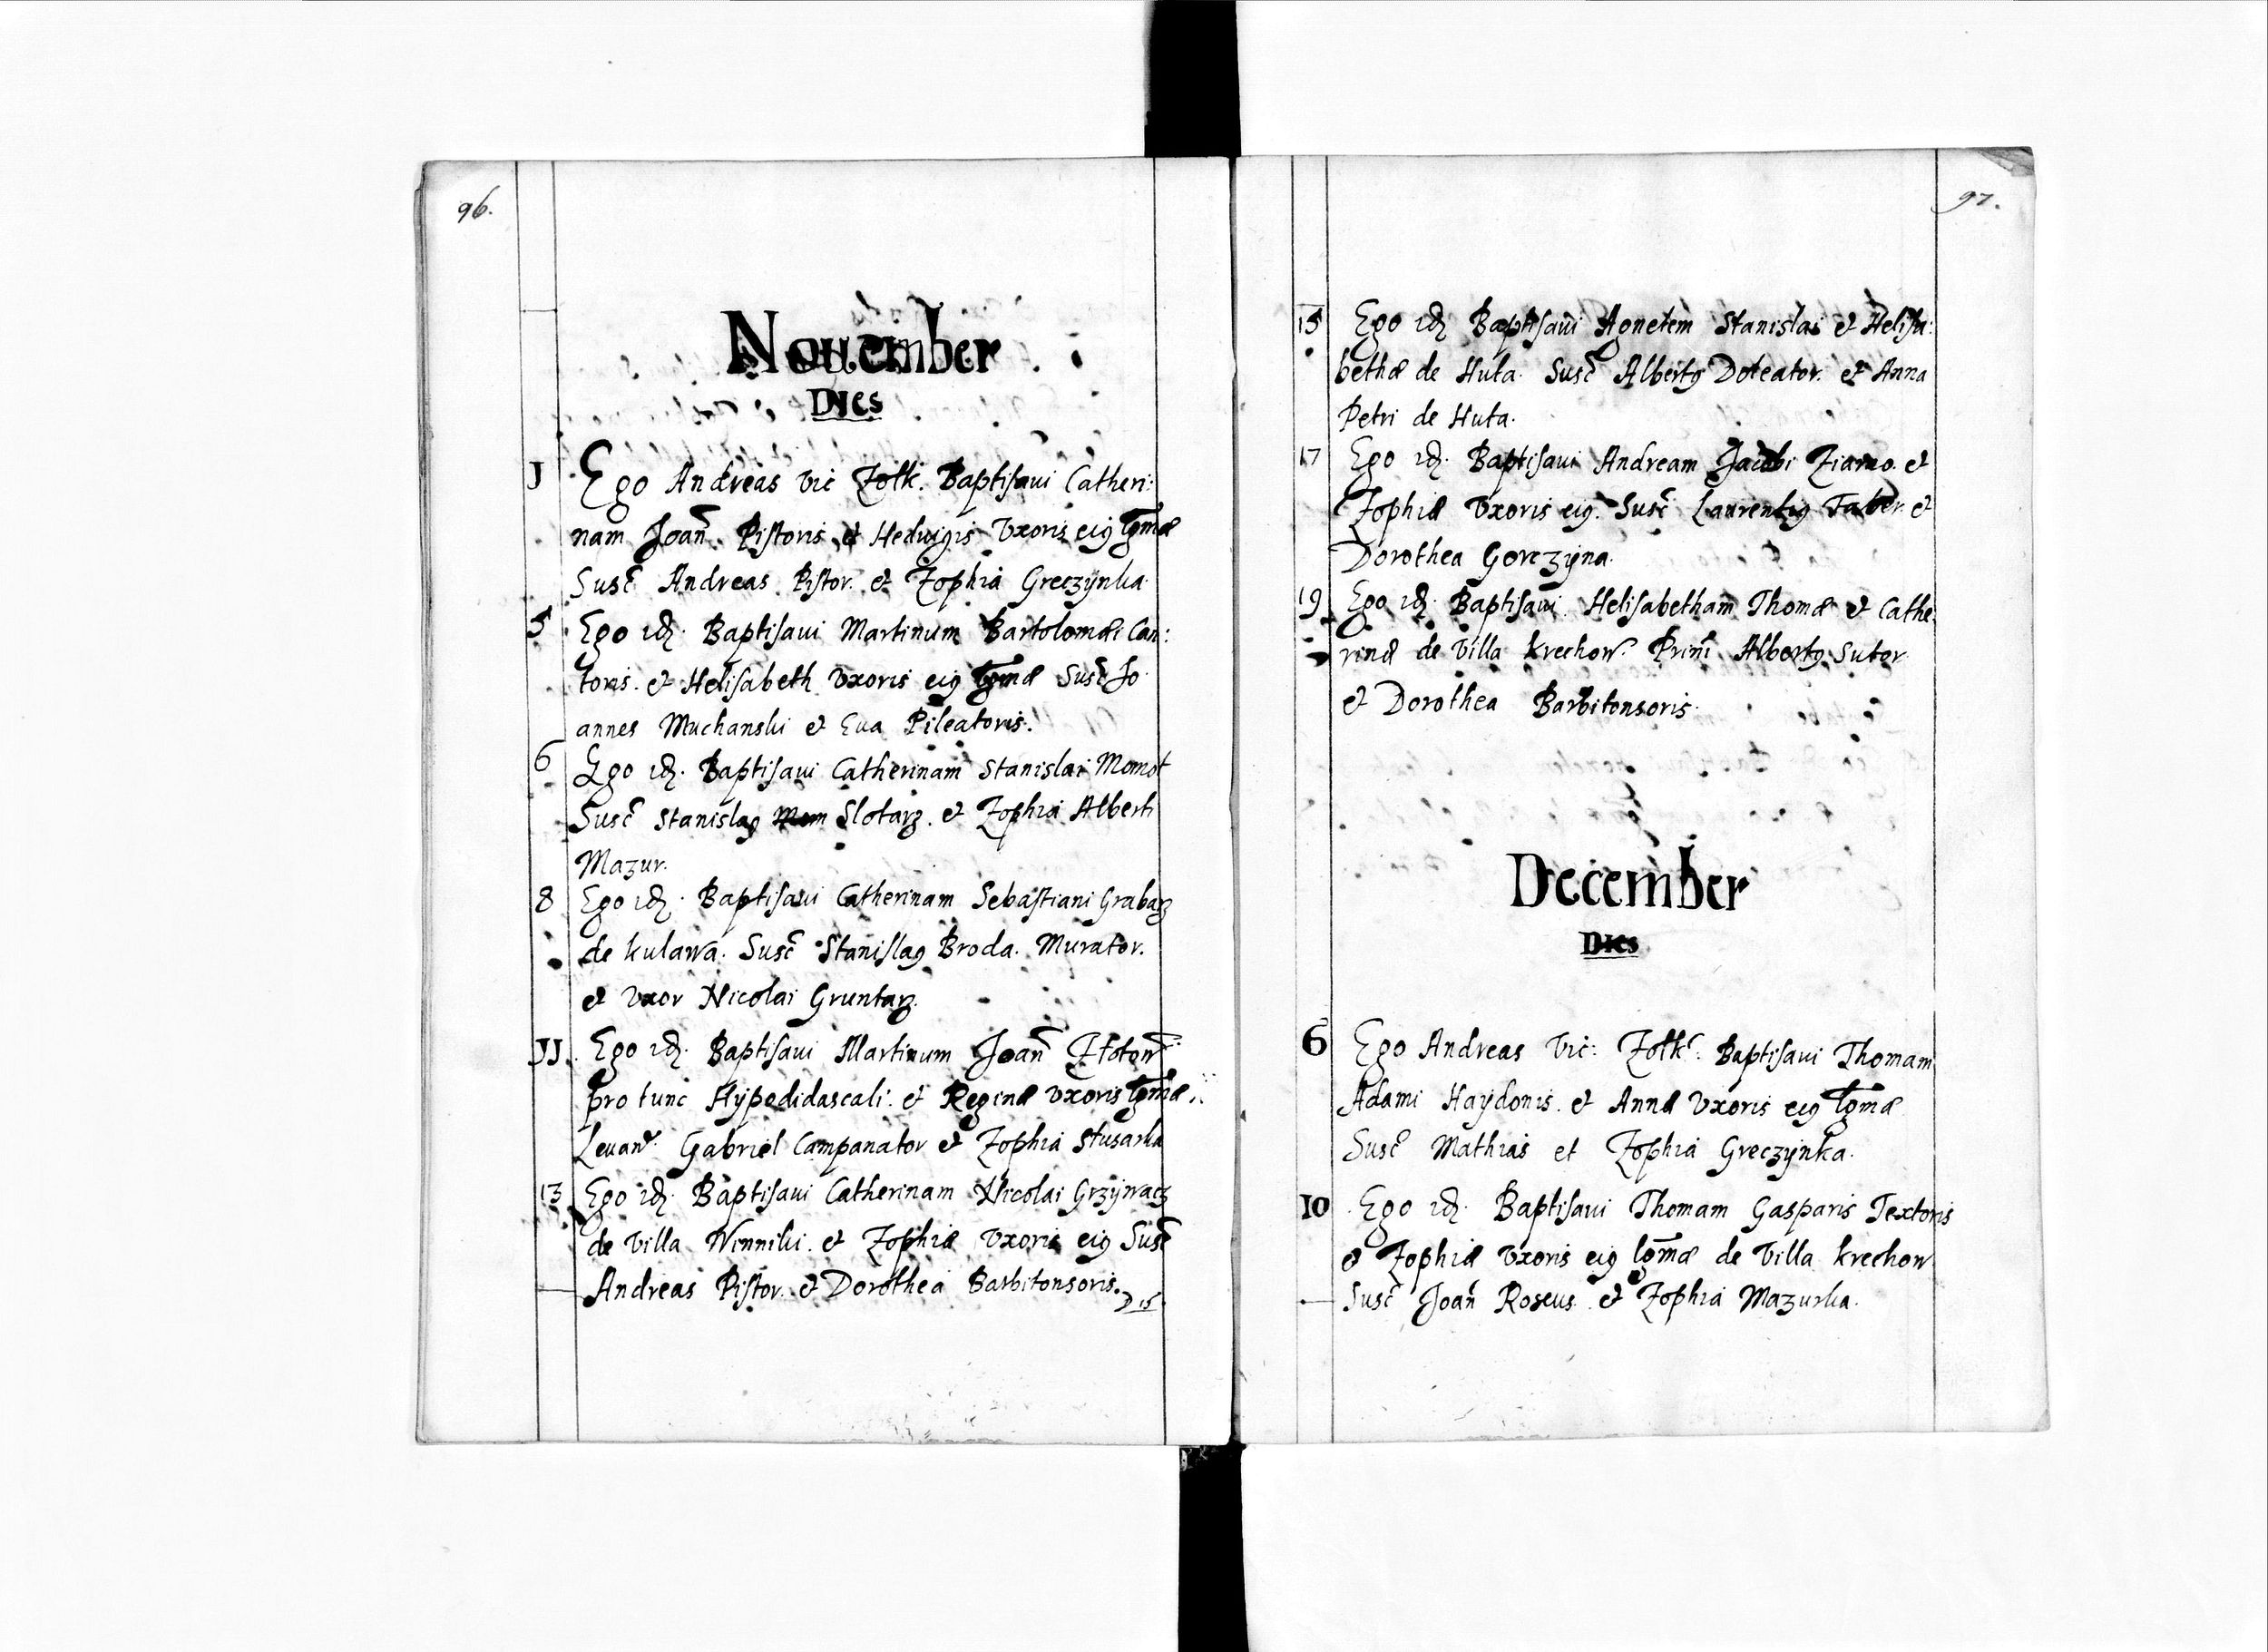 96.
November
Dies
1 Ego Andreas Vic Zolk. Baptisaui Catheri:
nam Joañ. Pistoris et Hedwigis Vxoris eiꝰ lgmæ
Susc̃ Andreas Pistor. et Zophia Greczÿnka
5 Ego idꝫ. Baptisaui Martinum Bartolomæi Can:
toris. et Helisabeth Vxoris eiꝰ lgmæ Susc̃ Jo
annes Muchanski et Eua Pileatoris.
6 Ego idꝫ. Baptisaui Catherinam Stanislai Momot
Susc̃ Stanislaꝰ Mom Slotarz. et Zophia Alberti
Mazur.
8 Ego idꝫ. Baptisaui Catherinam Sebastiani Grabarz
de kulawa. Susc̃ Stanislaꝰ Broda. Murator.
et Vxor Nicolai Gruntarz.
JJ. Ego idꝫ. Baptisaui Martinum Joañ
pro tunc Hÿpodidascali. et Reginæ Vxoris lgmæ
Leuanr̃. Gabriel Campanator et Zophia Slusarka
13 Ego idꝫ. Baptisaui Catherinam Nicolai Grzÿwacz
de Villa Winniki. et Zophiæ Vxoris eiꝰ Susc̃
Andreas Pistor. et Dorothea Barbitonsoris.
D 15.
97.
15 Ego idꝫ Baptisaui Agnetem Stanislai et Helisa:
bethæ de Huta. Susc̃ Albertꝰ Doleator. et Anna
Petri de Huta.
17 Ego idꝫ. Baptisaui Andream Jacobi Ziarno. et
Zophiæ Vxoris eiꝰ. Susc̃ Laurentiꝰ Faber. et
Dorothea Gorczÿna.
19 Ego idꝫ. Baptisaui. Helisabetham Thomæ et Cathe.
rinæ de Villa krechow. Albertꝰ Sutor
et Dorothea Barbitonsoris.
December
Dies
6 Ego Andreas Vic: Zolkc: Baptisaui Thomam
Adami Haÿdonis. et Annæ Vxoris eiꝰ lgmæ
Susc̃ Mathias et Zophia Greczÿnka.
10 Ego idꝫ. Baptisaui Thomam Gasparis Textoris
et Zophiæ Vxoris eiꝰ lgmæ de Villa krechow
Susc̃ Joañ Roseus. et Zophia Mazurka.